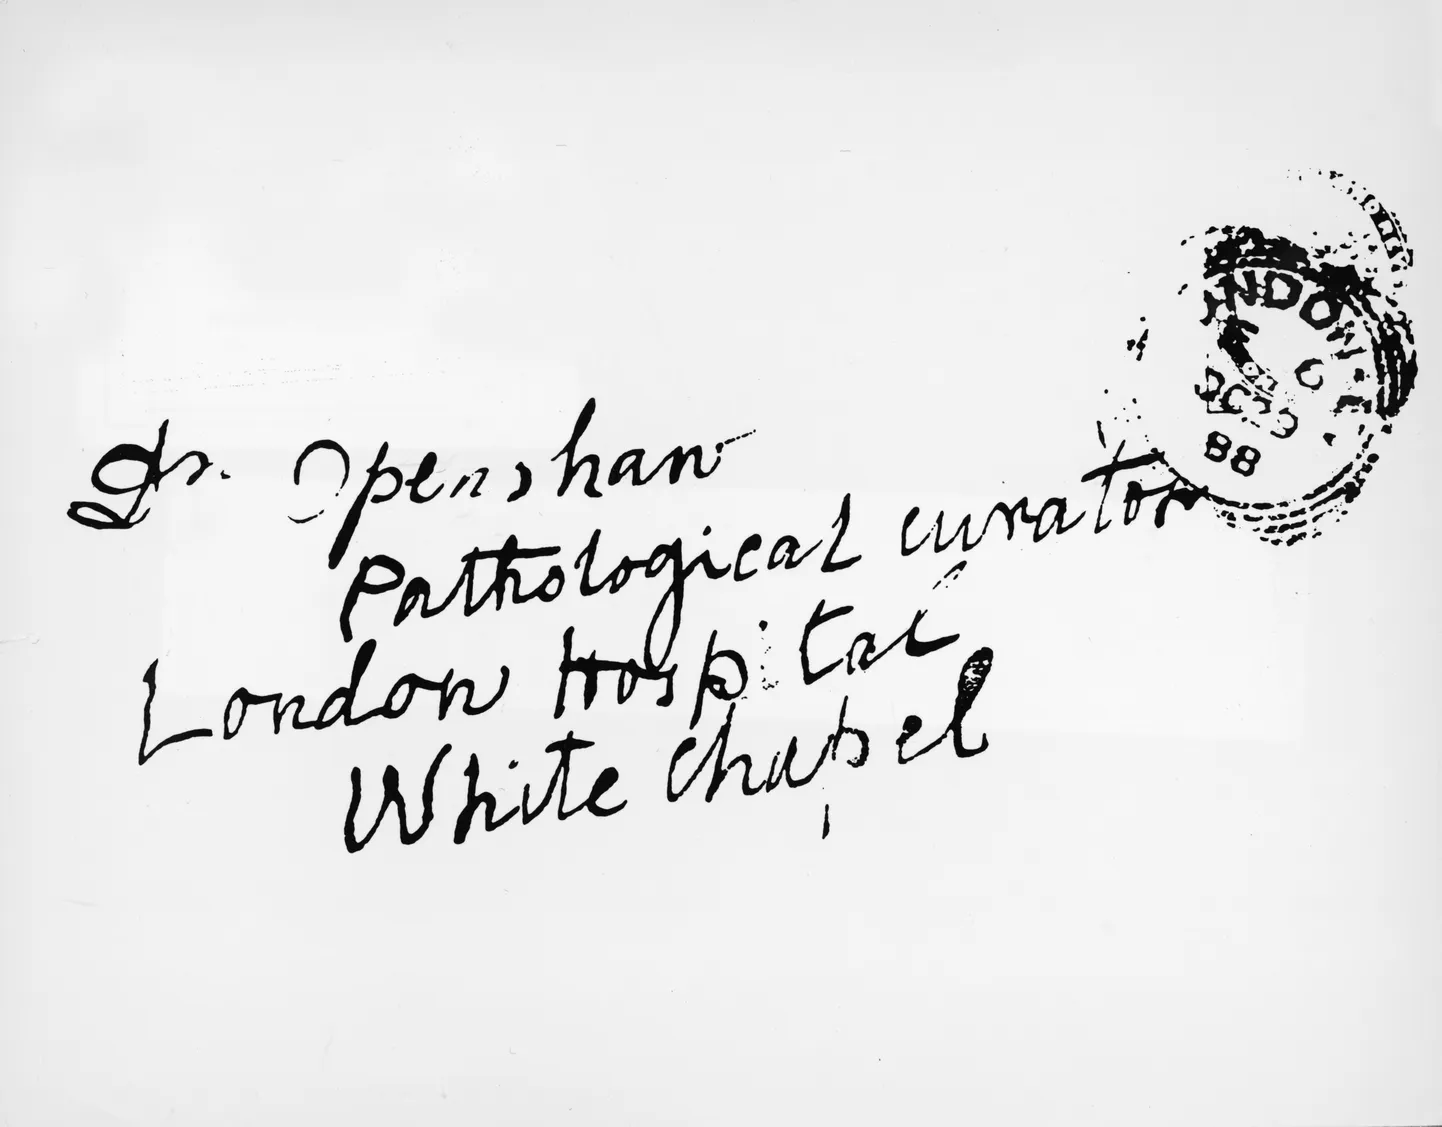 Dr. Openshaw
Pathological curator
London Hospital
White chapel
LONDON E
OC 29
88